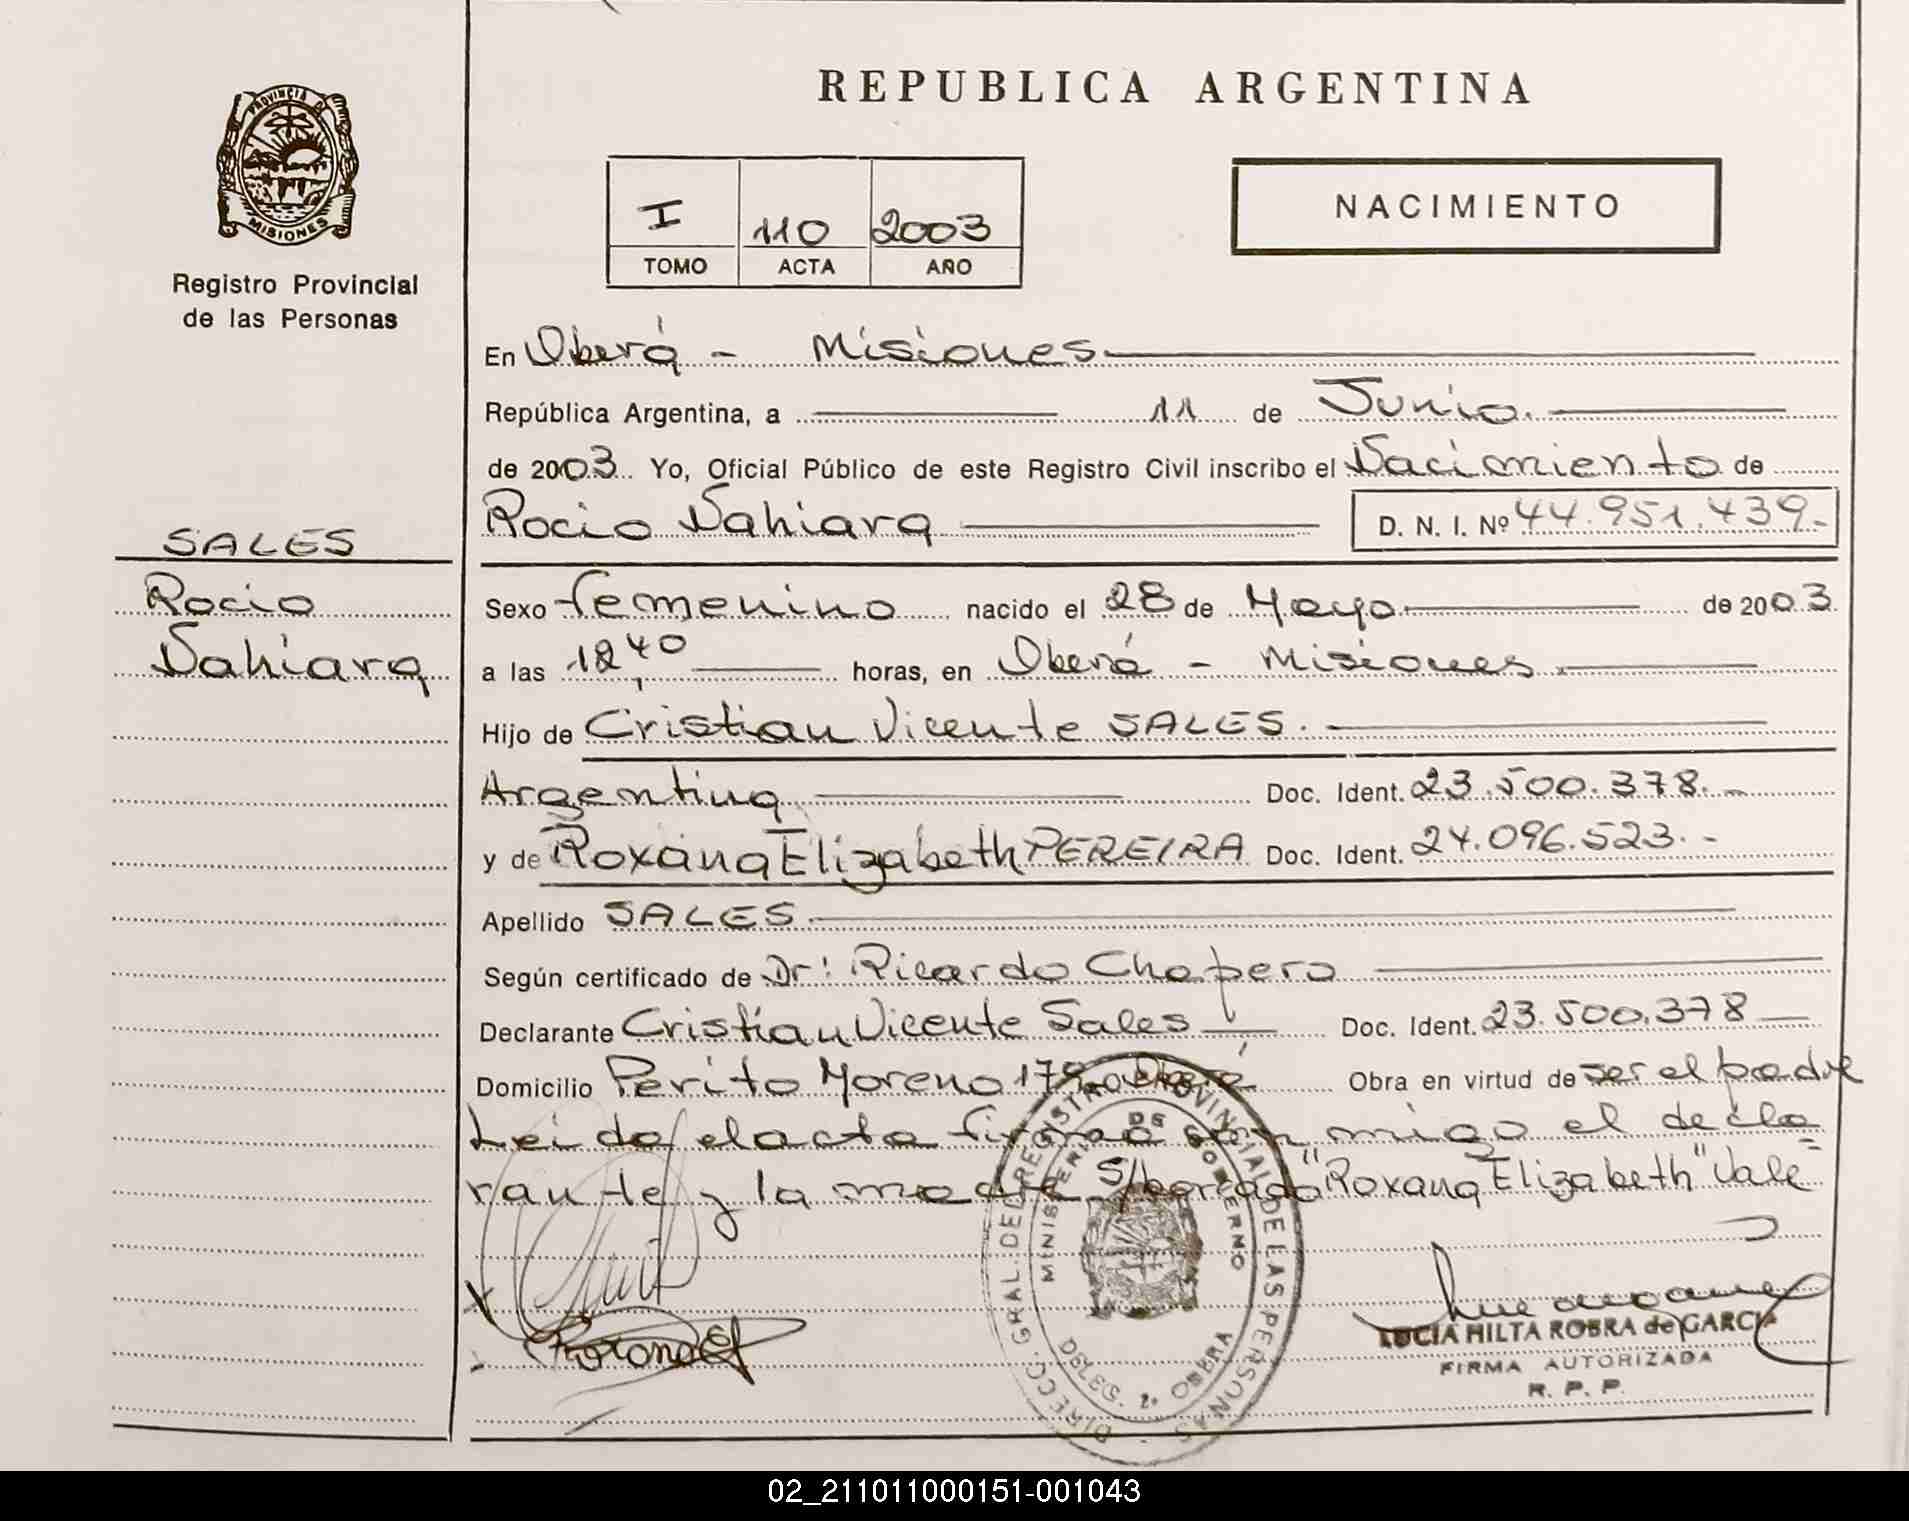 REPUBLICA ARGENTINA
PROVINCIA DE
MISIONES
Registro Provincial
de las Personas
I 110 2003
TOMO ACTA AÑO
NACIMIENTO
En Oberá - Misiones
República Argentina, a 11 de Junio.
de 2003 Yo, Oficial Público de este Registro Civil inscribo el Nacimiento de
Rocio Nahiara D. N. I. Nº 44.951.439-
SALES
Rocio
Nahiara
Sexo femenino nacido el 28 de Mayo de 2003
a las 12,40 horas, en Oberá - Misiones
Hijo de Cristian Vicente SALES.
Argentina Doc. Ident. 23.500.378.-
y de Roxana Elizabeth PEREIRA Doc. Ident. 24.096.523.-
Apellido SALES
Según certificado de Dr: Ricardo Chapero
Declarante Cristian Vicente Sales Doc. Ident. 23.500.378
Domicilio Perito Moreno Oberá Obra en virtud de ser el padre
Leida el acta firma con migo el decla=
rante y la madre S/borrado "Roxana Elizabeth" Vale
Roxana
LUCIA HILTA ROBRA de GARCIA
FIRMA AUTORIZADA
R. P. P.
DIRECC. GRAL. DEL REGISTRO PROVINCIAL DE LAS PERSONAS
MINISTERIO DE GOBIERNO
02_211011000151-001043